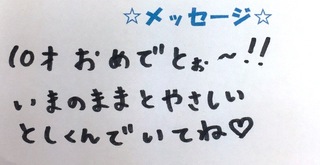 ☆メッセージ☆
10才 おめでとぉ～!!
いまのままとやさしい
としくんでいてね♡